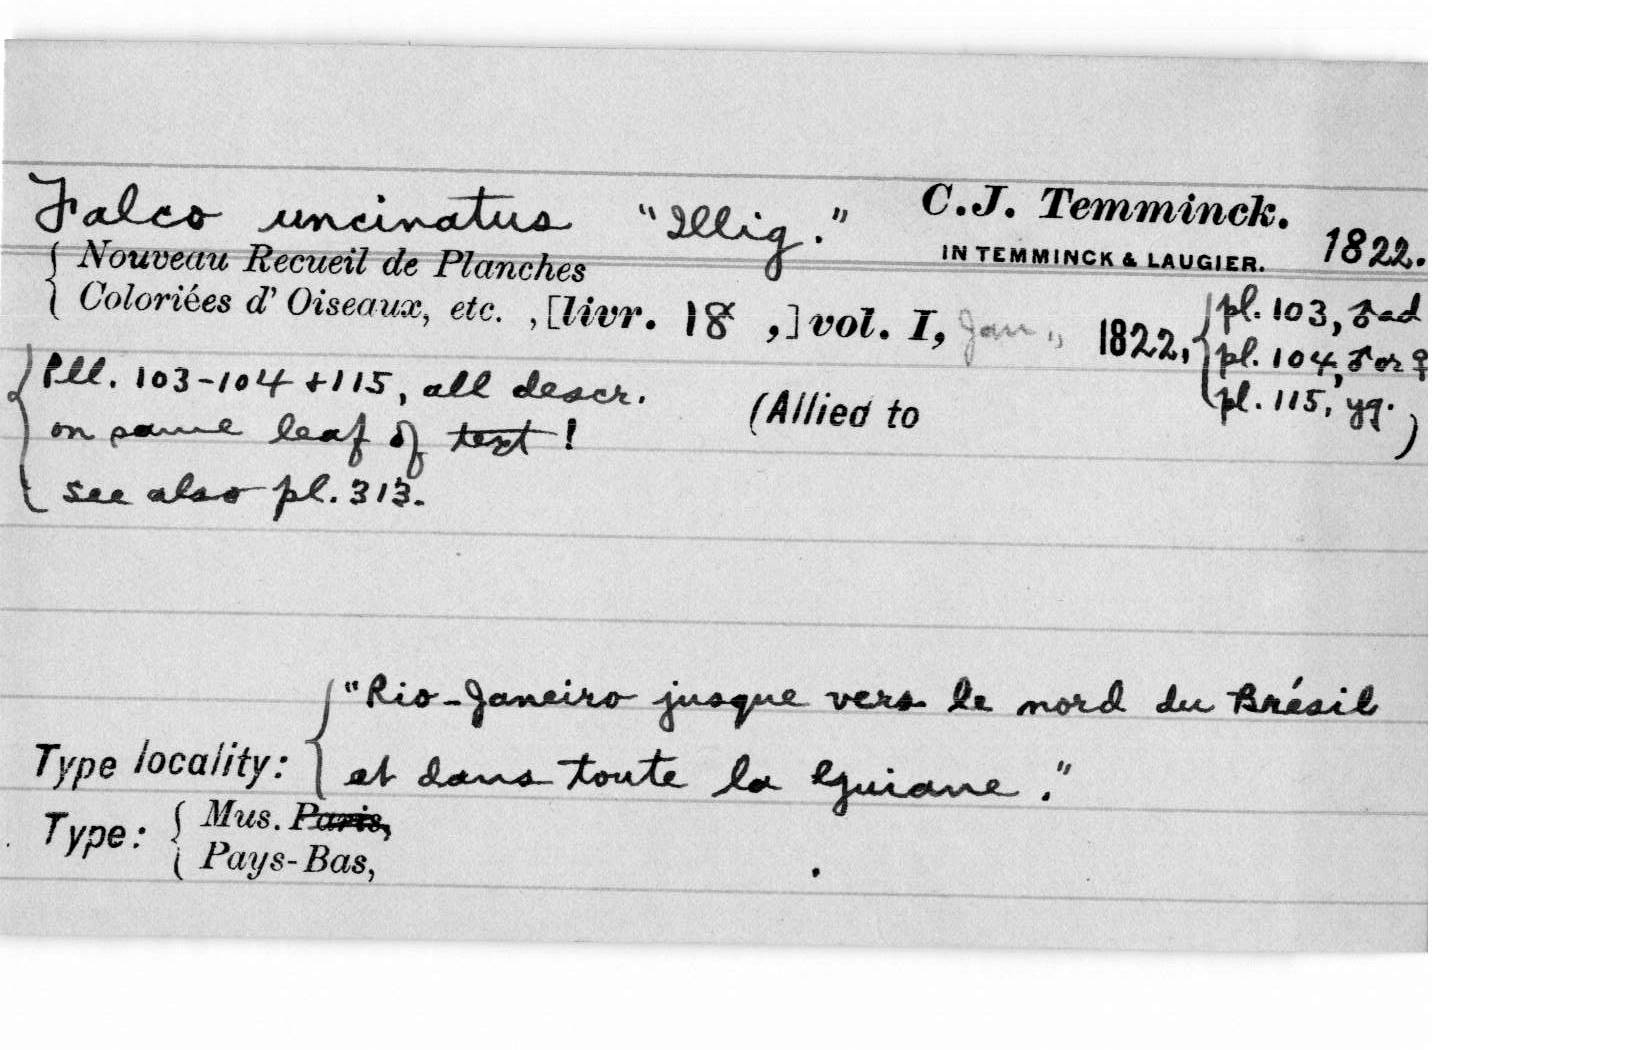 Falco uncinatus "Illig." C.J. Temminck. 1822.
IN TEMMINCK & LAUGIER.
Nouveau Recueil de Planches
Coloriées d' Oiseaux, etc. , [livr. 18 ,] vol. I, Jan., 1822, pl. 103, ♂ ad
pl. 104, ♂ or ♀
pl. 115, yg. )
Pll. 103-104 + 115, all descr. (Allied to
on same leaf of text!
see also pl. 313.
"Rio-Janeiro jusque vers le nord du Brésil
Type locality: et dans toute la Guiane."
Type: Mus. Paris,
Pays-Bas, .